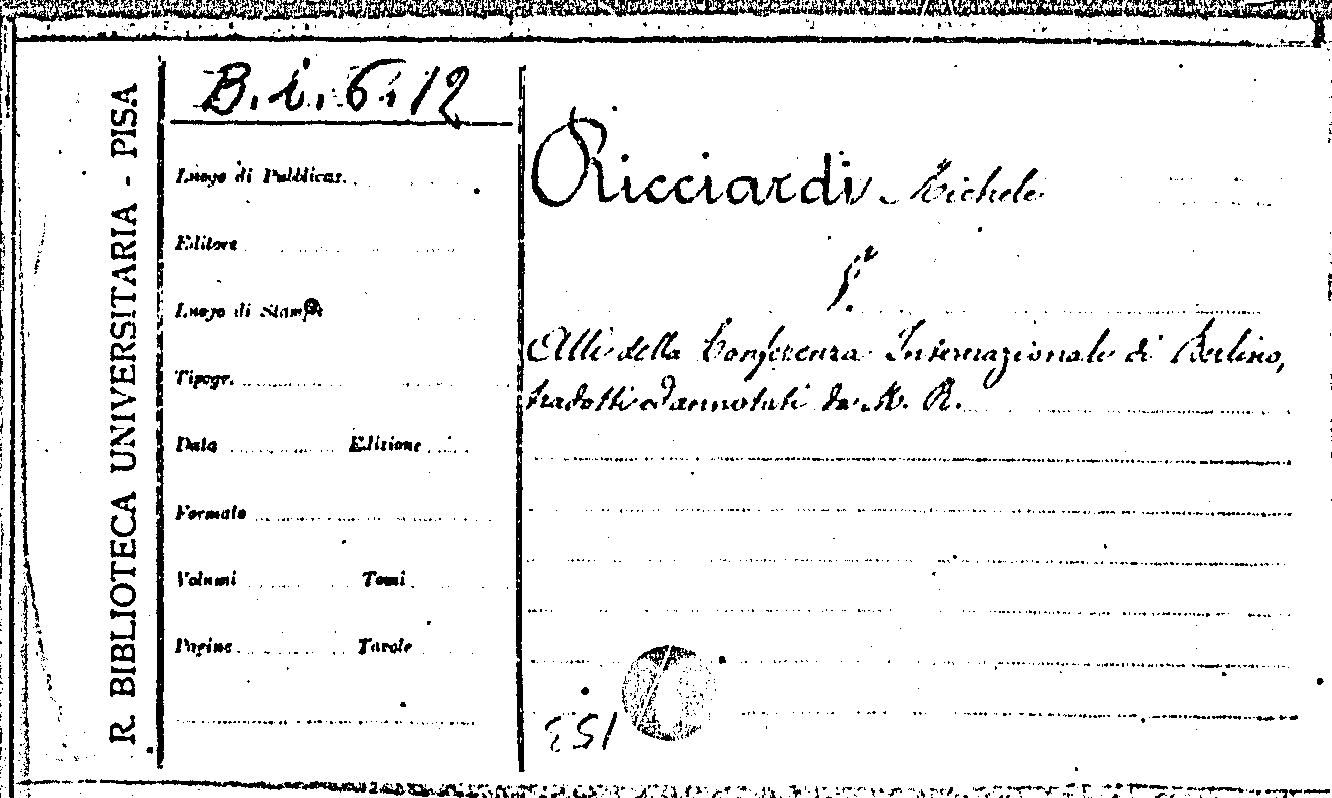 R. BIBLIOTECA UNIVERSITARIA - PISA
B. i. 6. 12
Luogo di Pubblicaz.
Editore
Luogo di Stampa
Tipogr.
Data Edizione
Formato
Volumi Tomi
Pagine Tavole
Ricciardi Michele
Atti della Conferenza Internazionale di Berlino,
tradotti ed annotati da M. R.